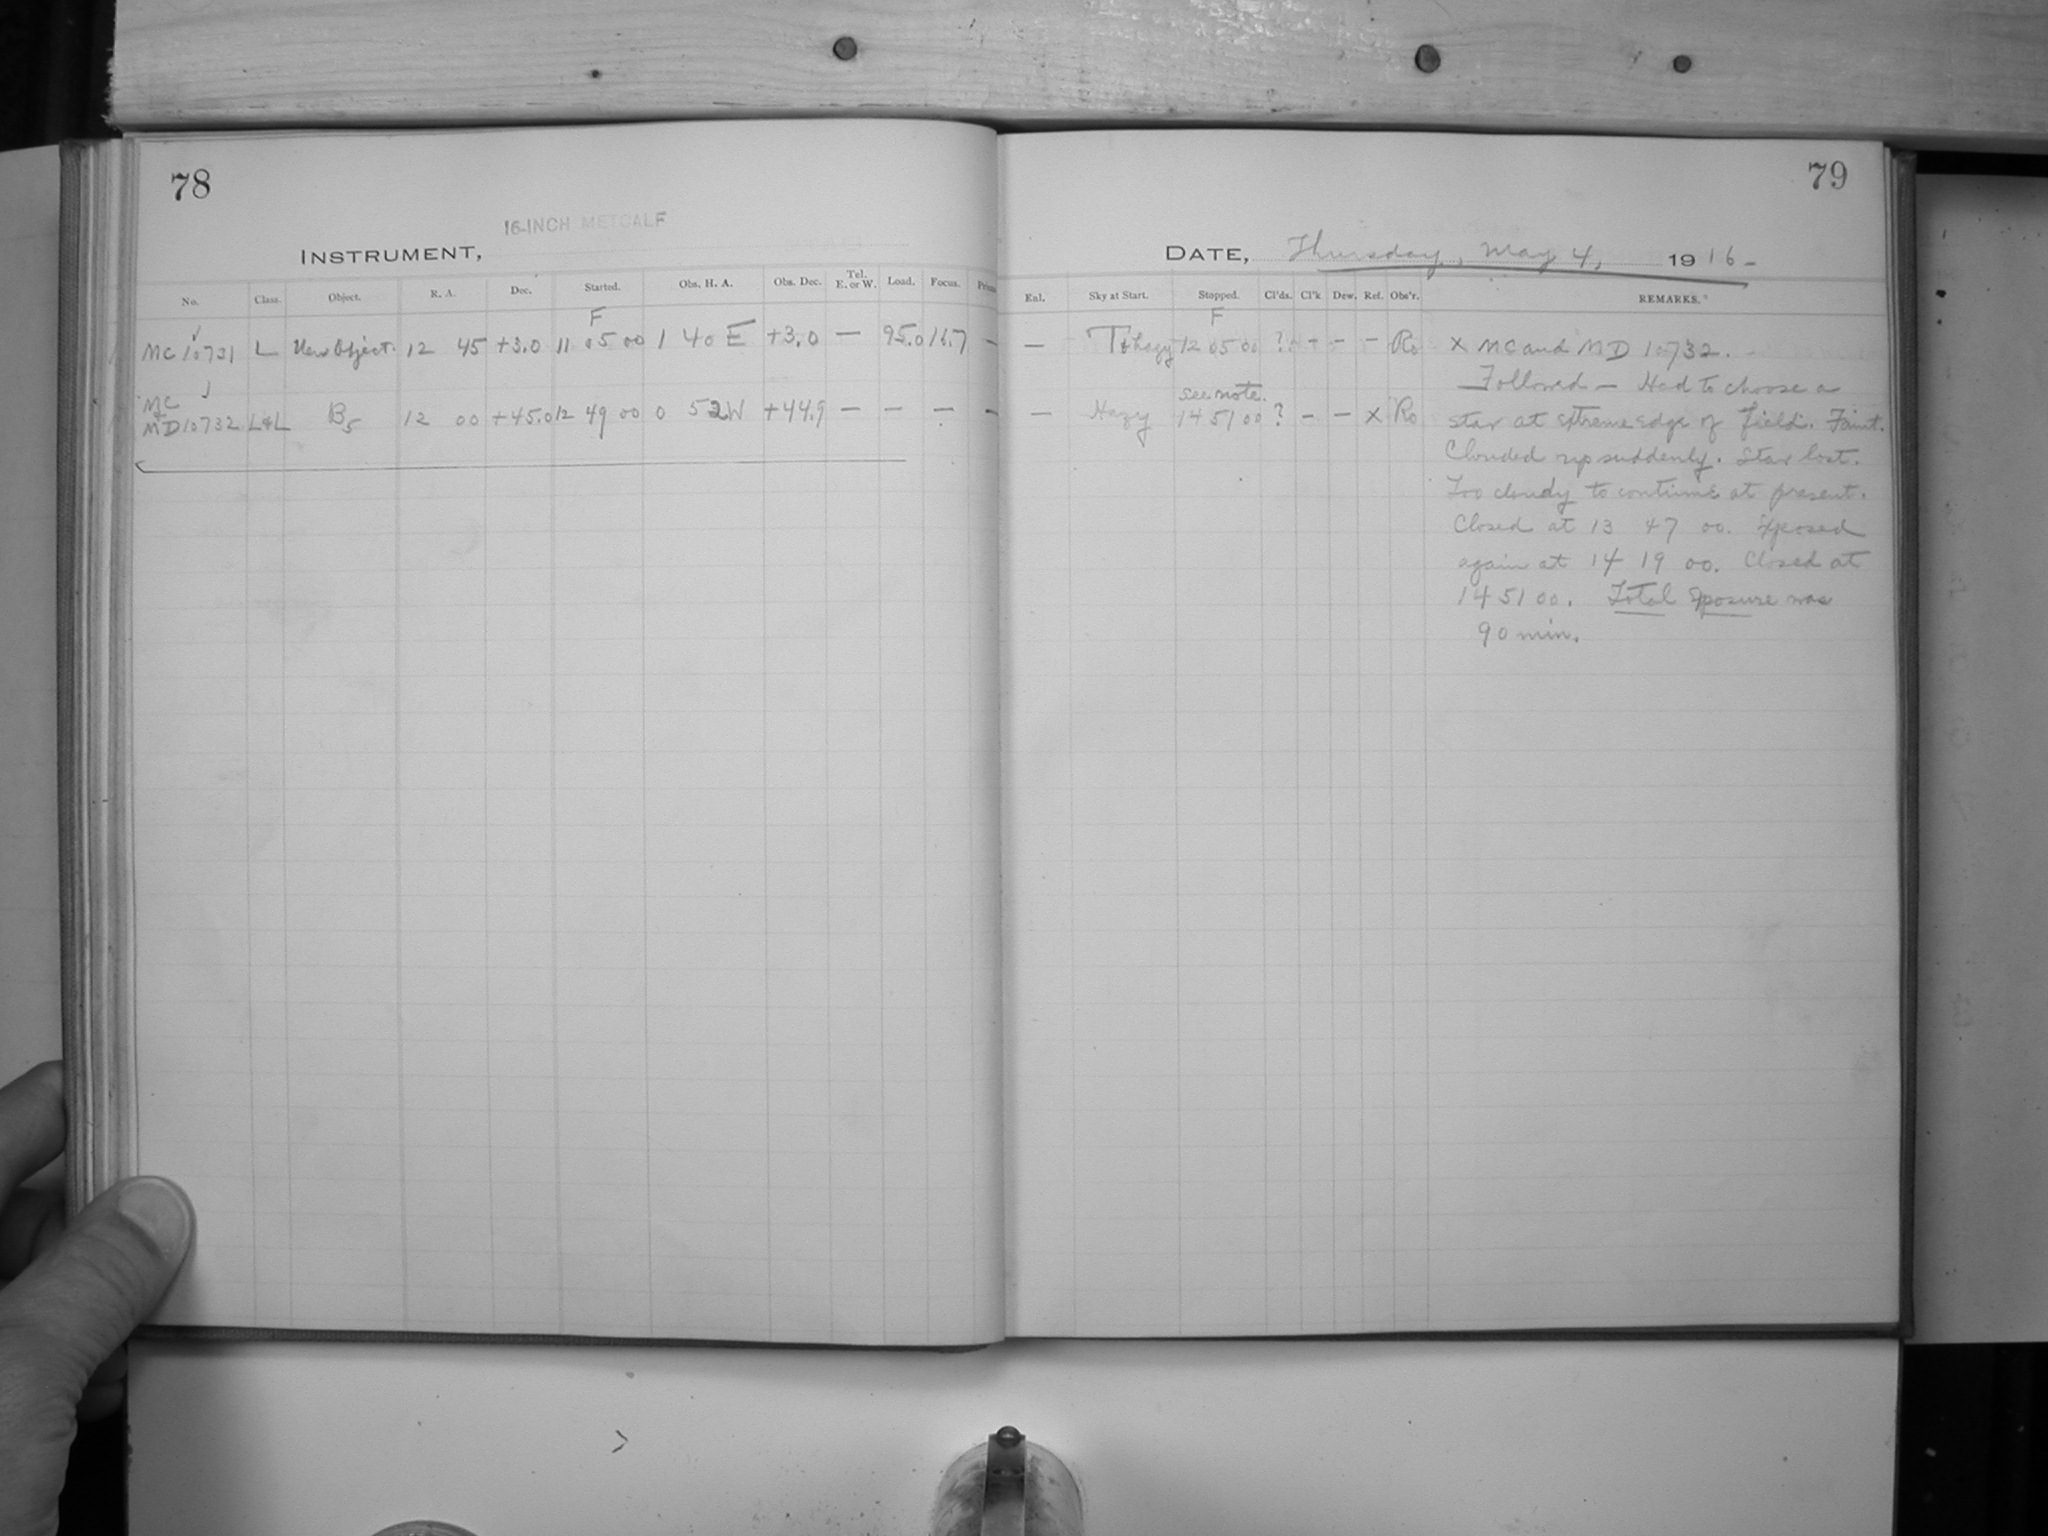 78
16-INCH METCALF
INSTRUMENT,
No. Class. Object. R. A. Dec. Started. Obs. H. A. Obs. Dec. Tel. E. or W. Load. Focus.
F
MC 10731 L New Object. 12 45 +3.0 11 05 00 1 40 E +3.0 — 95.0 16.7 –
MC
+
MD 10732 L&L B5 12 00 +45.0 12 49 00 0 52W +44.9 — – – –
79
DATE, Thursday, May 4, 1916-
Enl. Sky at Start. Stopped. Cl'ds. Cl'k Dew. Ref. Obs'r. REMARKS.
F
— hazy 12 05 00 ? – – – Ro x MC and MD 10732.
Followed — Had to choose a
see note.
— Hazy 14 51 00 ? – – x Ro star at extreme edge of field. Faint.
Clouded up suddenly. Star lost.
Too cloudy to continue at present.
Closed at 13 47 00. Exposed
again at 14 19 00. Closed at
14 51 00. Total Exposure was
90 min.